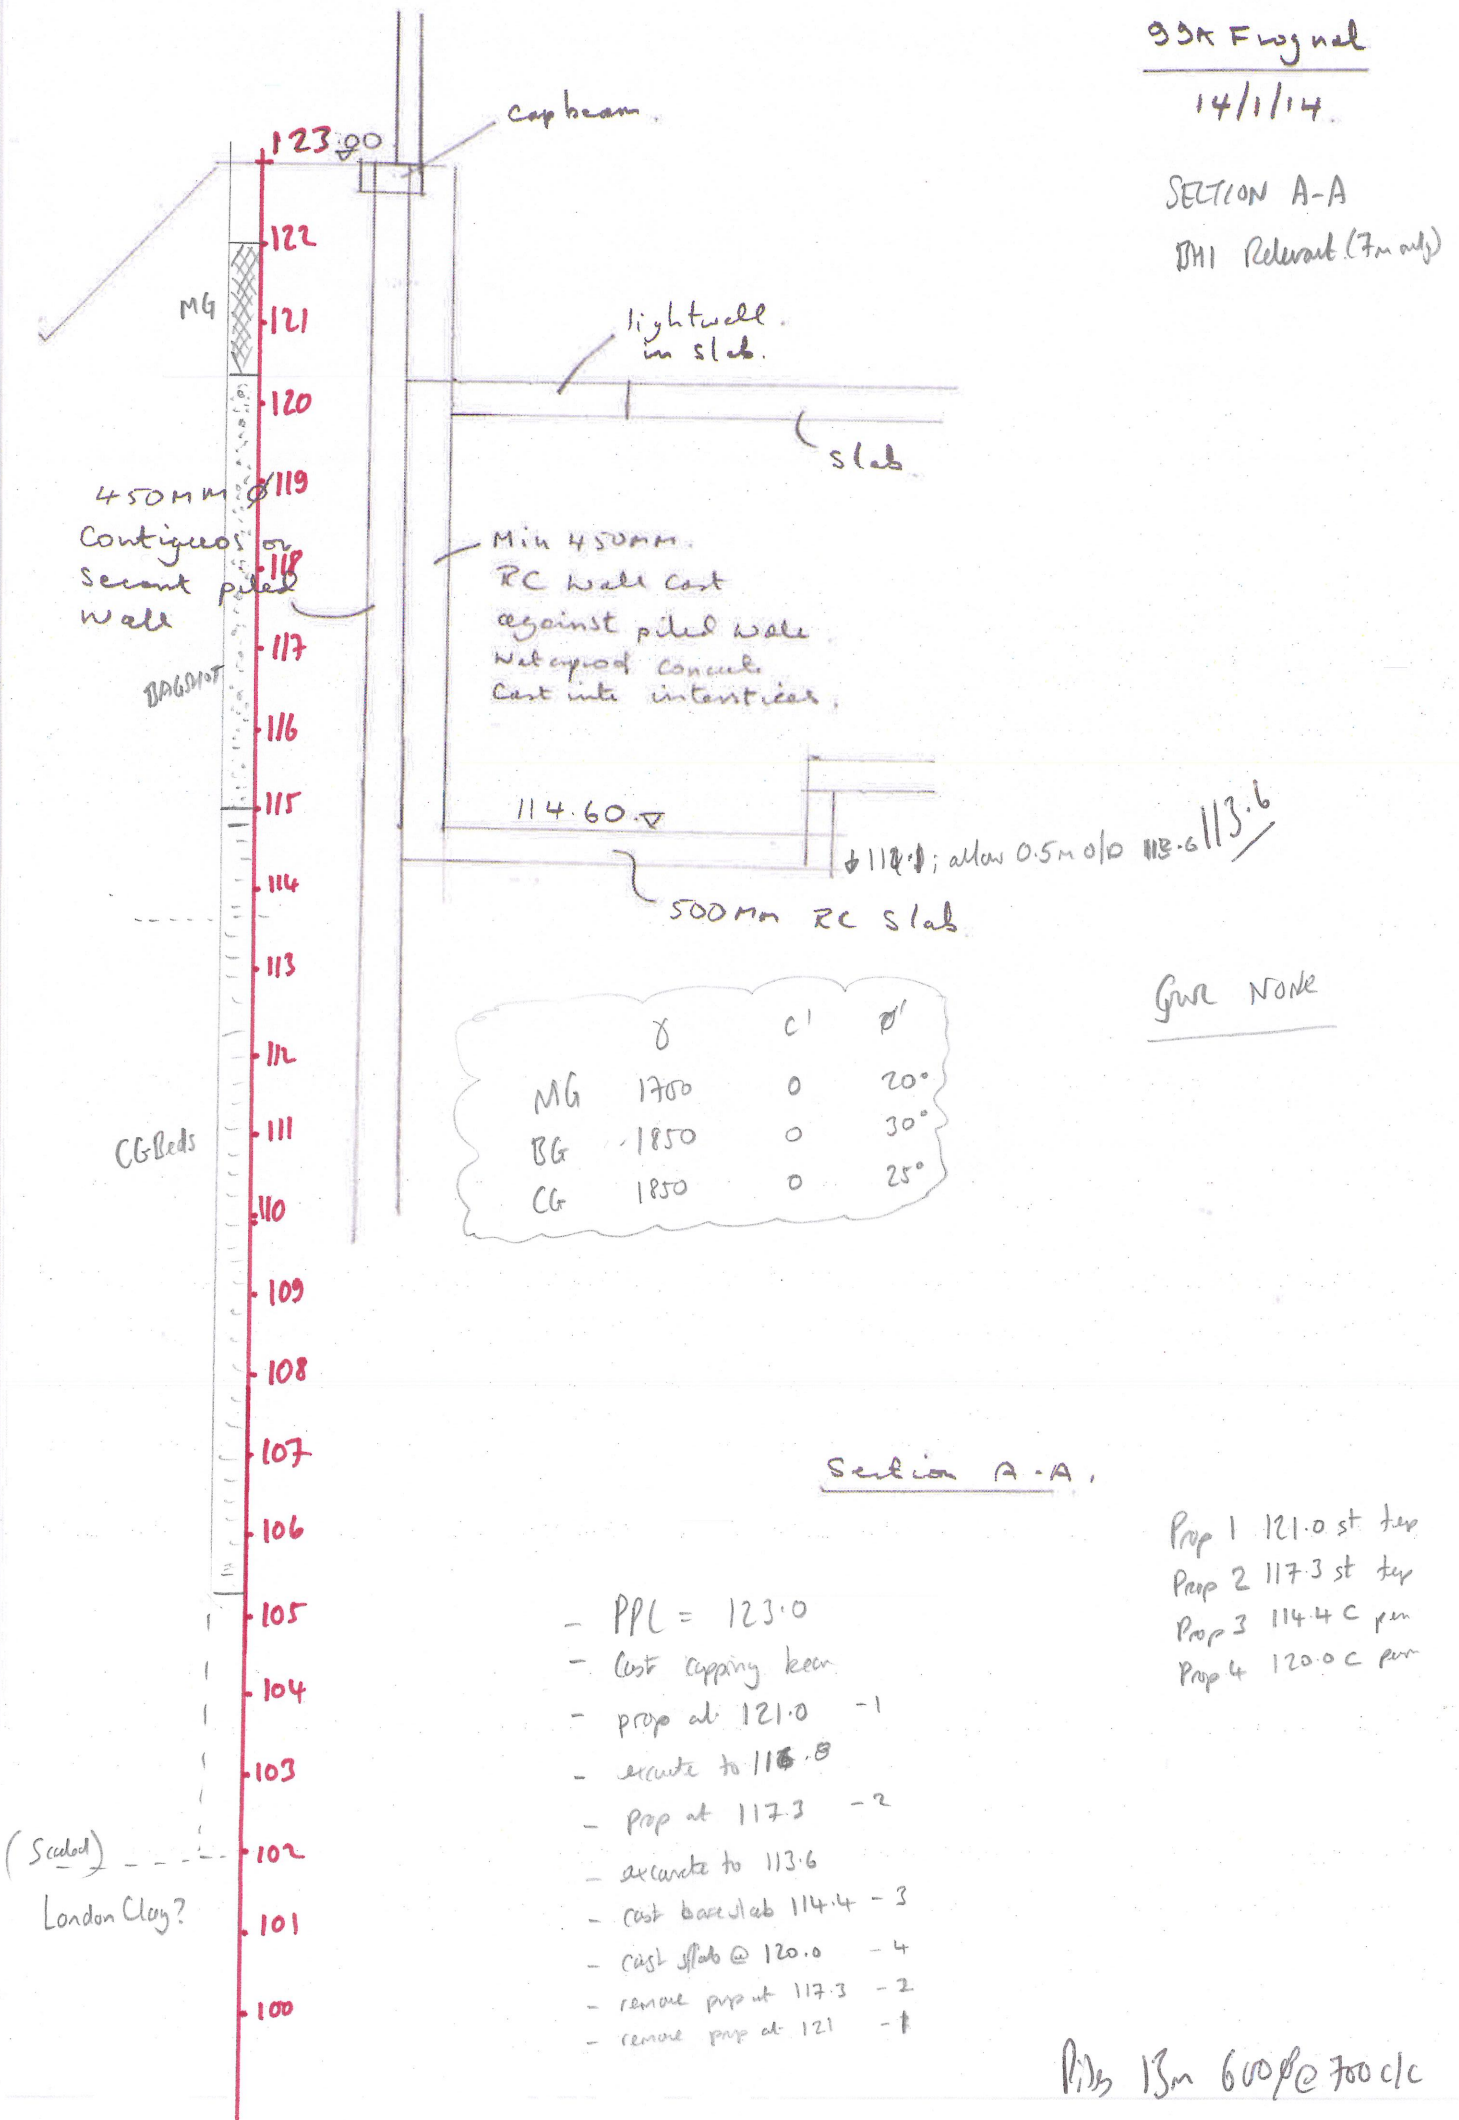 99A Frognal
14/1/14.
SECTION A-A
BH1 Relevant (7m only)
cap beam.
123.00
122
MG
121
120
119
118
117
116
115
114
113
112
111
110
109
108
107
106
105
104
103
102
101
100
lightwell
in slab.
slab
450MM Ø
Contiguos or
Secant piled
wall
BAGSHOT
Min 450MM.
RC wall cast
against piled wall.
Waterproof concrete
Cast into interstices.
114.60
↓ 114.1; allow 0.5m o/D 113.6 113.6
500MM RC slab
GWR NONE
γ c' ø'
MG 1700 0 20°
BG 1850 0 30°
CG 1850 0 25°
CGBeds
Section A-A.
Prop 1 121.0 st temp
Prop 2 117.3 st temp
Prop 3 114.4 C perm
Prop 4 120.0 C perm
- PPL = 123.0
- Cast capping beam
- prop at 121.0 - 1
- excavate to 116.8
- Prop at 117.3 - 2
- excavate to 113.6
- cast base slab 114.4 - 3
- cast slab @ 120.0 - 4
- remove prop at 117.3 - 2
- remove prop at 121 - 1
(Scaled)
London Clay?
Piles 13m 600ø@ 700 c/c